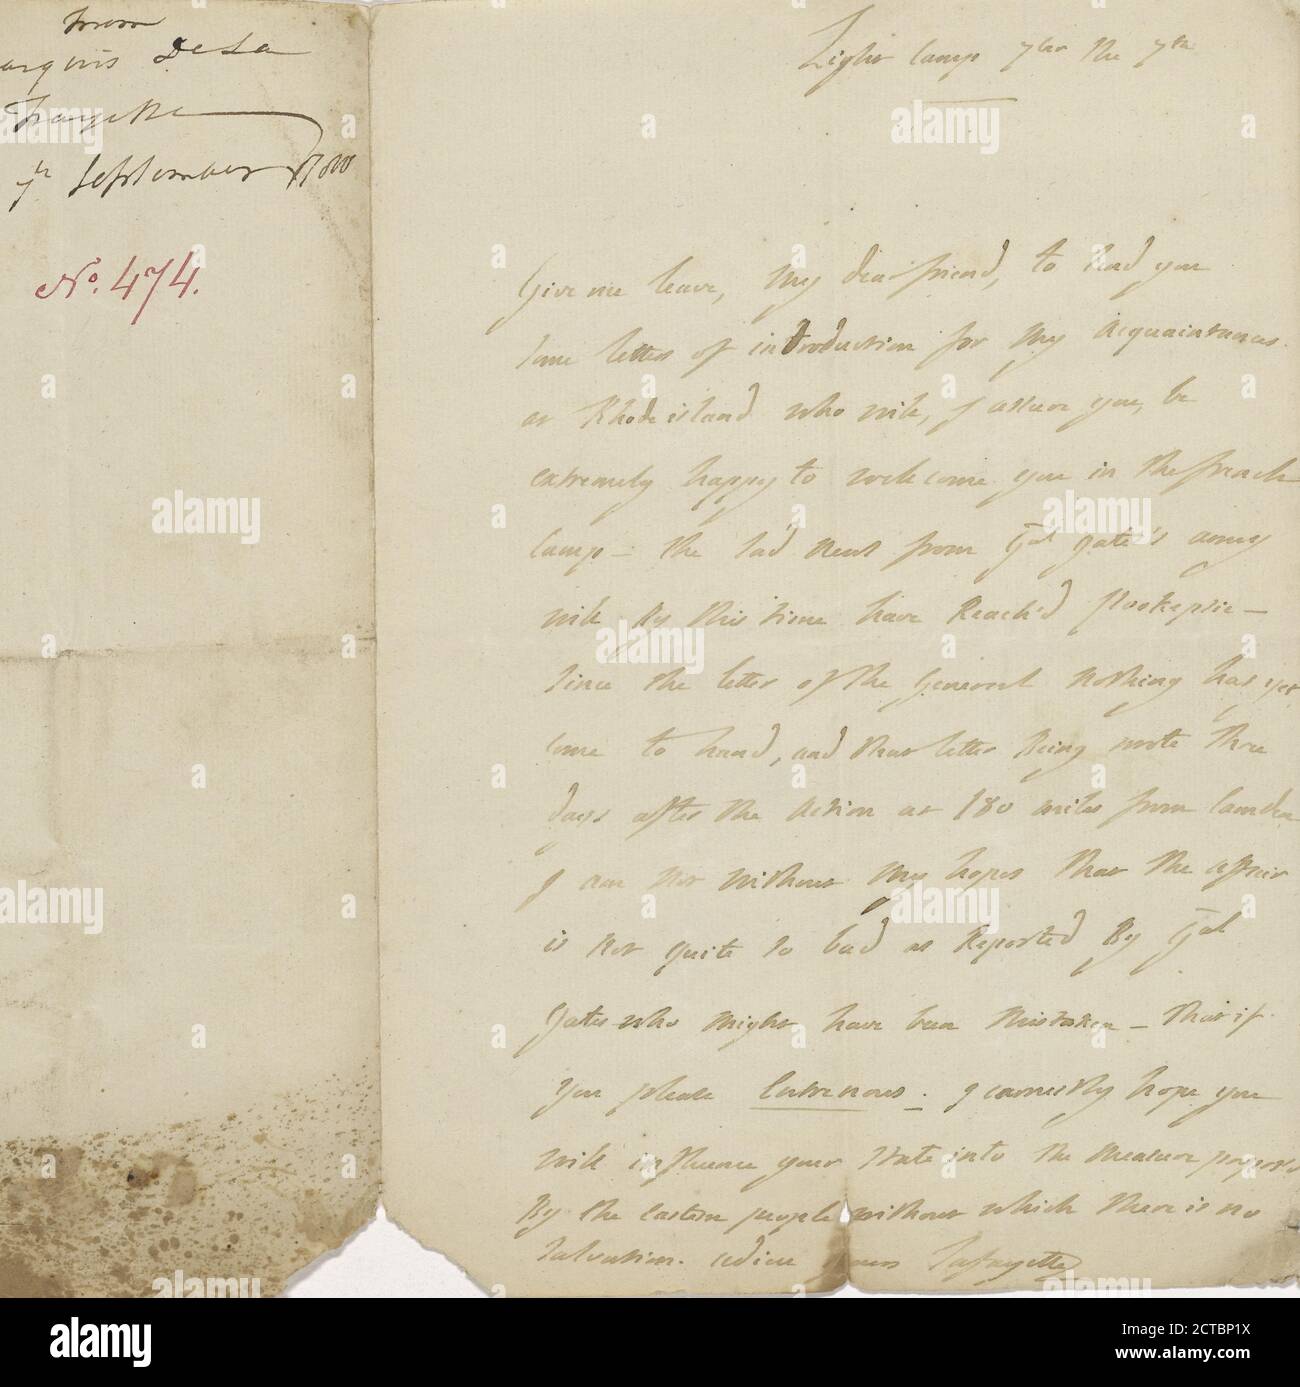 from
arquis De La
Fayette
7th September 1780
No. 474.
Light Camp 7ber the 7th
Give me leave, My dear friend, to send you
some letters of introduction for My Acquaintances
at Rhode island who will, I assure you, be
extremely happy to wellcome you in the french
Camp – the sad news from Gal gate's army
will By this time have Reach'd Pookepsie –
since the letter of the General nothing has yet
come to hand, and that letter Being wrote three
days after the Action at 180 miles from Camden
I am not without My hopes that the affair
is not quite so bad as Reported By Gal
Gates who Might have been Mistaken – that if
You please Entre nous. I earnestly hope you
will influence your State into the Measure propos'd
By the Eastern people without which there is no
Salvation. Adieu yours Lafayette
alamy
Image ID: 2CTBP1X
www.alamy.com